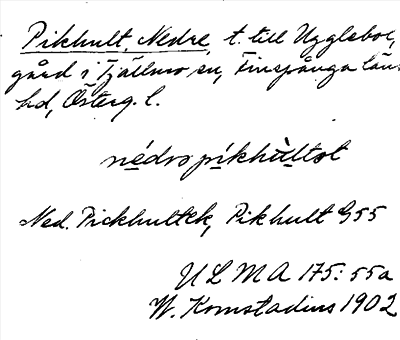 Pikhult, Nedre, t. till Uggleboe,
gård i Tjällmo sn, Finspånga läns
hd, Österg. l.
nédrə píkhùltət
Ned. Pickhultek, Pikhult G55
ULMA 175:55a
W. Komstadius 1902